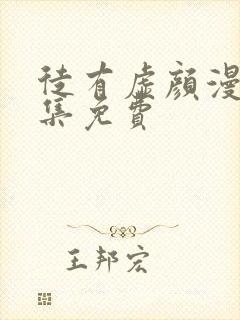 徒有虛顏漫
集免費
王邦宏